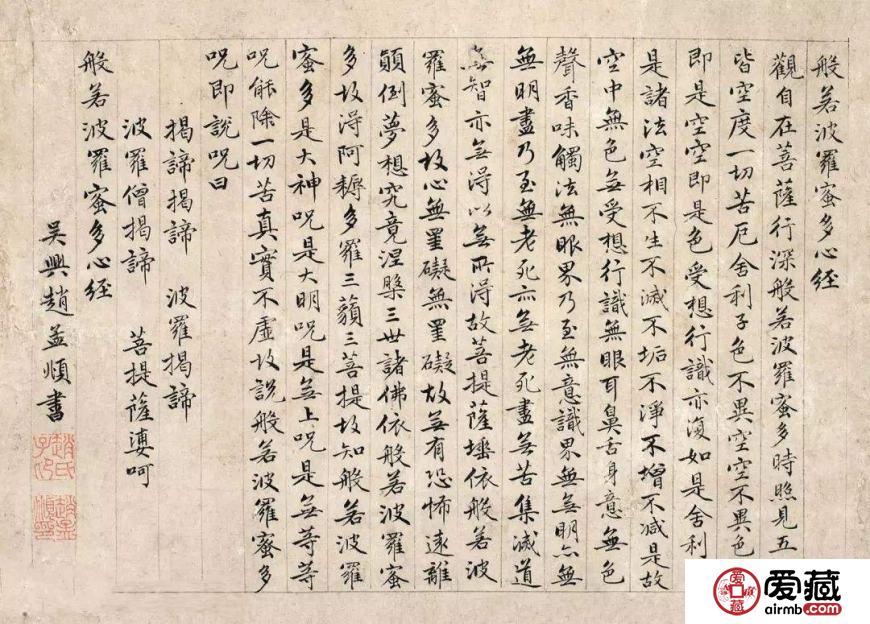 般若波羅蜜多心經
觀自在菩薩行深般若波羅蜜多時照見五
皆空度一切苦厄舍利子色不異空空不異色
即是空空即是色受想行識亦復如是舍利
是諸法空相不生不滅不垢不淨不增不減是故
空中無色無受想行識無眼耳鼻舌身意無色
聲香味觸法無眼界乃至無意識界無無明亦無
無明盡乃至無老死亦無老死盡無苦集滅道
無智亦無得以無所得故菩提薩埵依般若波
羅蜜多故心無罣礙無罣礙故無有恐怖遠離
顛倒夢想究竟涅槃三世諸佛依般若波羅蜜
多故得阿耨多羅三藐三菩提故知般若波羅
蜜多是大神咒是大明咒是無上咒是無等等
咒能除一切苦真實不虛故說般若波羅蜜多
咒即說咒曰
揭諦揭諦 波羅揭諦
波羅僧揭諦 菩提薩婆呵
般若波羅蜜多心經
吳興趙孟頫書
趙氏子昂
爱藏
爱藏
airmb.com